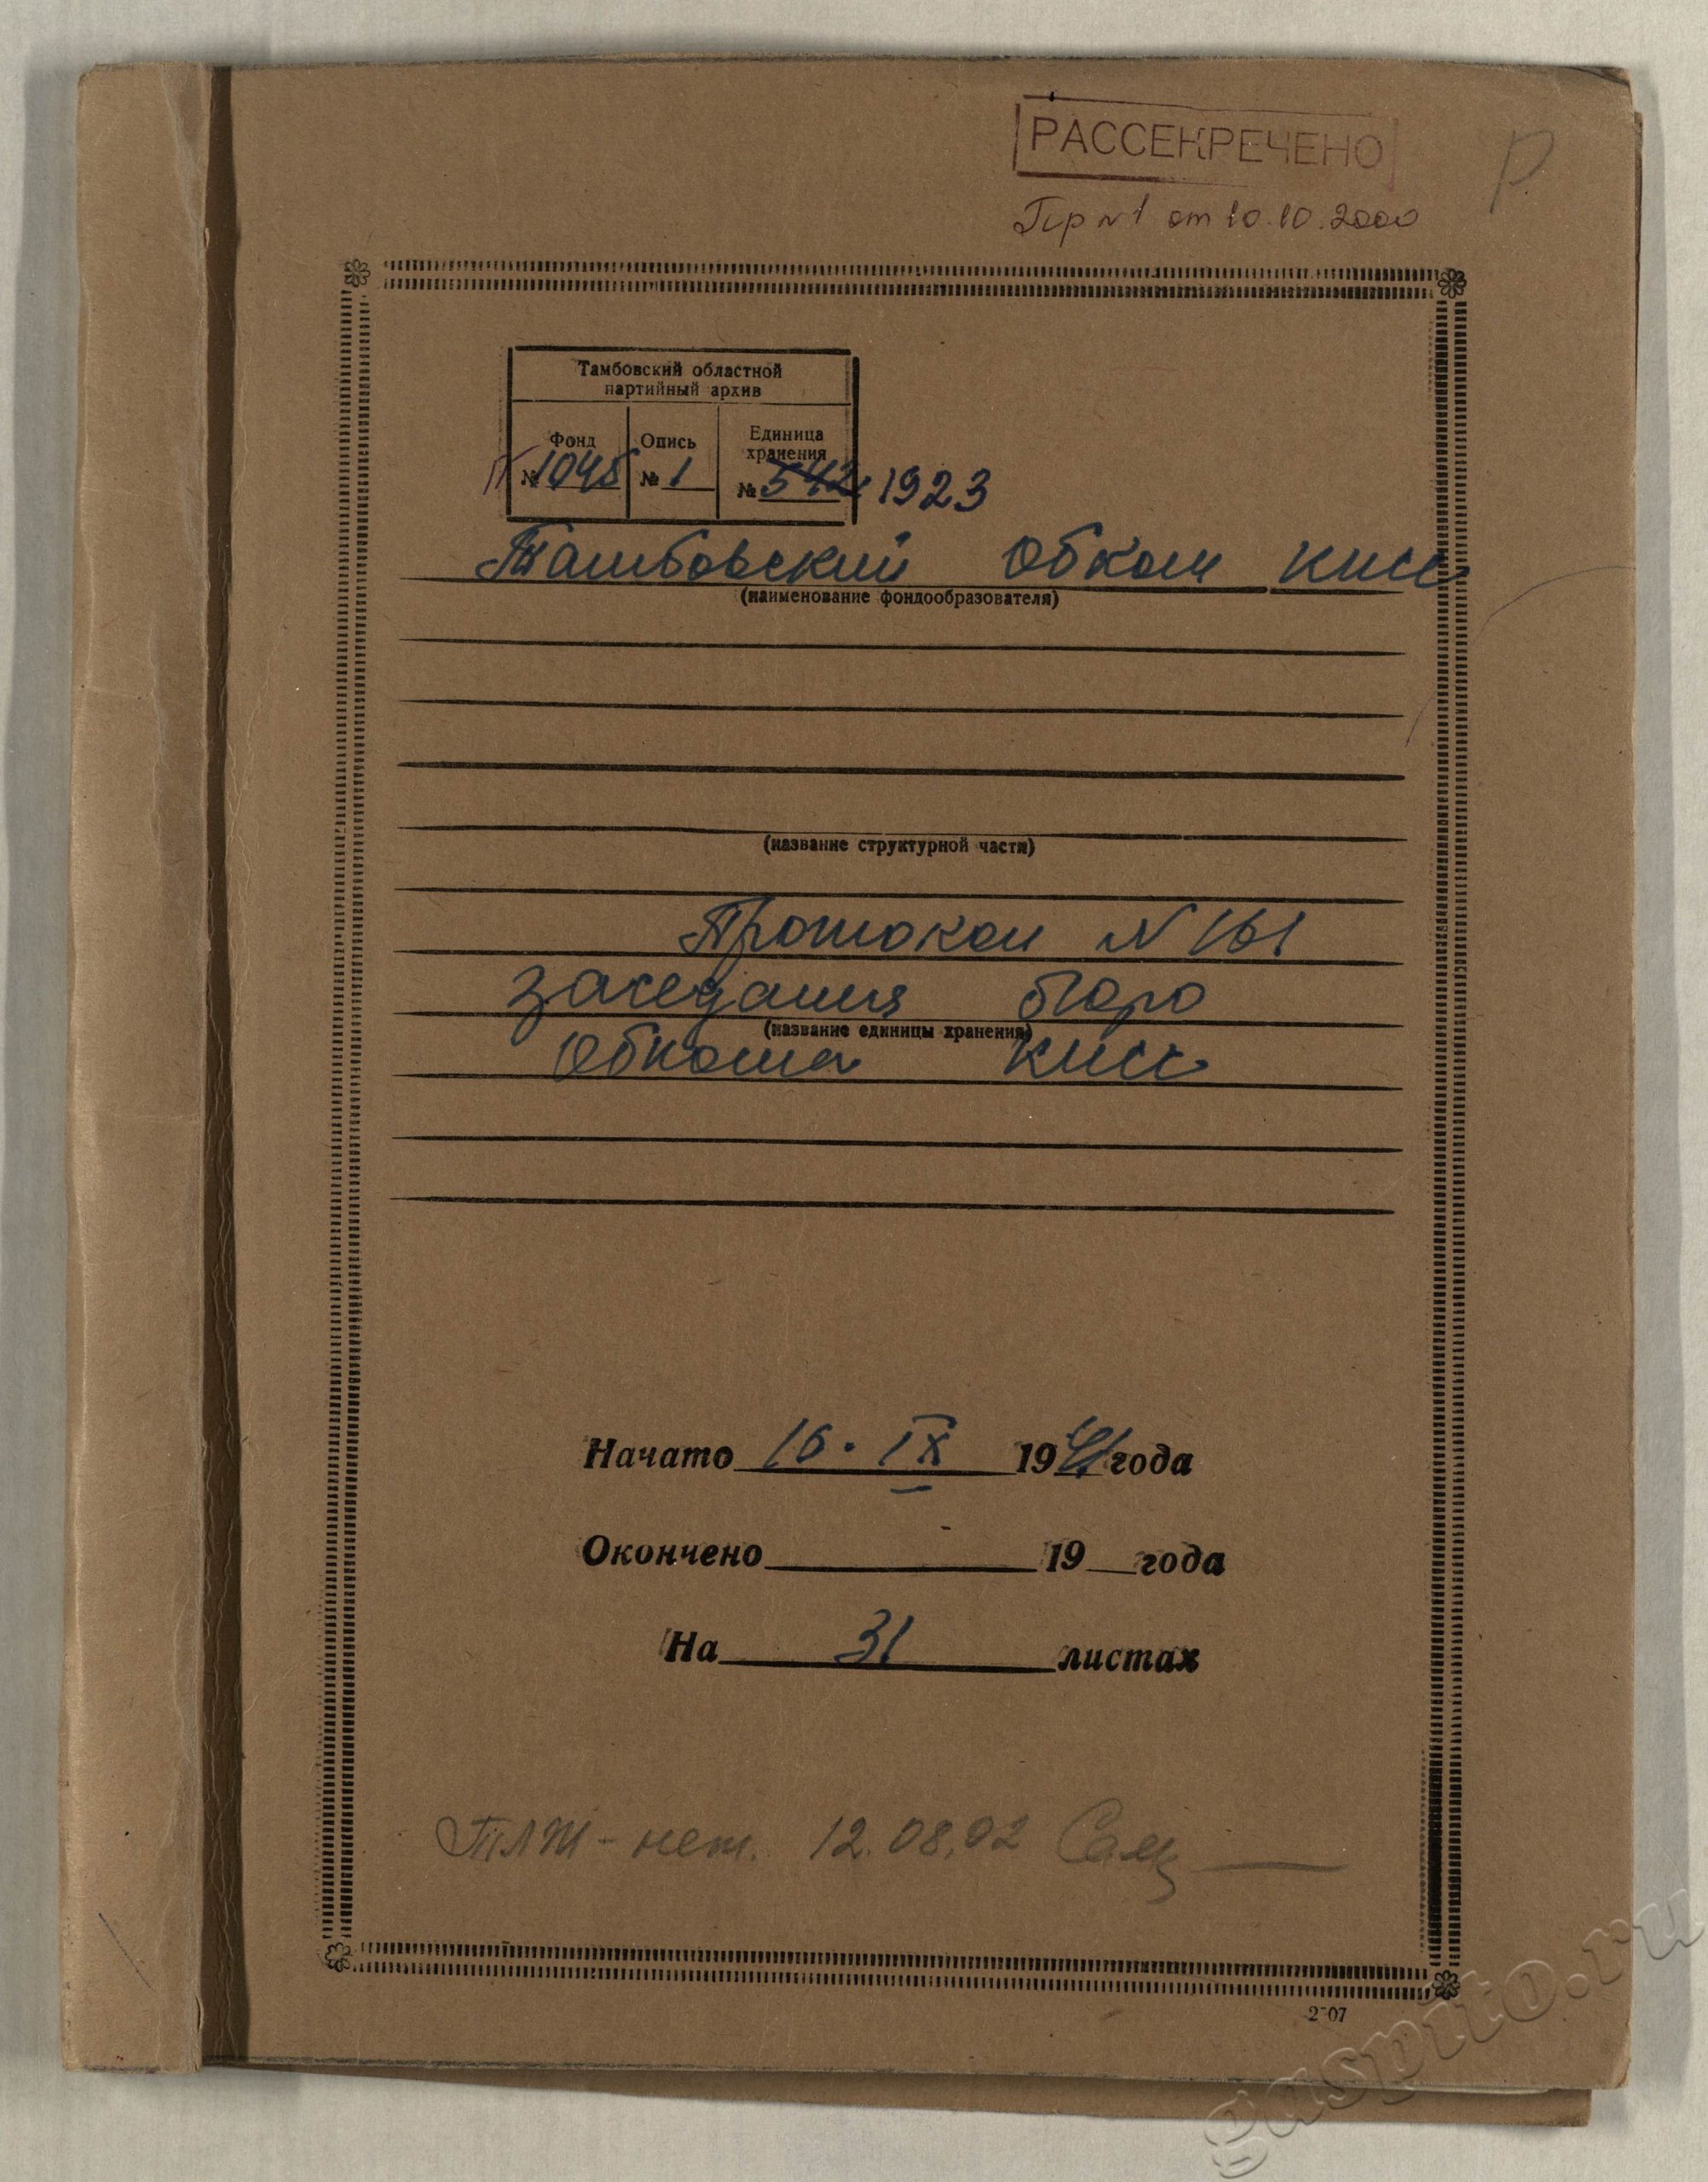 РАССЕКРЕЧЕНО
Пр №1 от 10.10.2000
Р
Тамбовский областной
партийный архив
Фонд Опись Единица
хранения
П №1045 №1 №542 1923
Тамбовский Обком КПСС
(наименование фондообразователя)
(название структурной части)
Протокол №161
заседания бюро
(название единицы хранения)
Обкома КПСС
Начато 16. IX 1941 года
Окончено 19 года
На 31 листах
- нет. 12.08.02
2 07
gaspito.ru